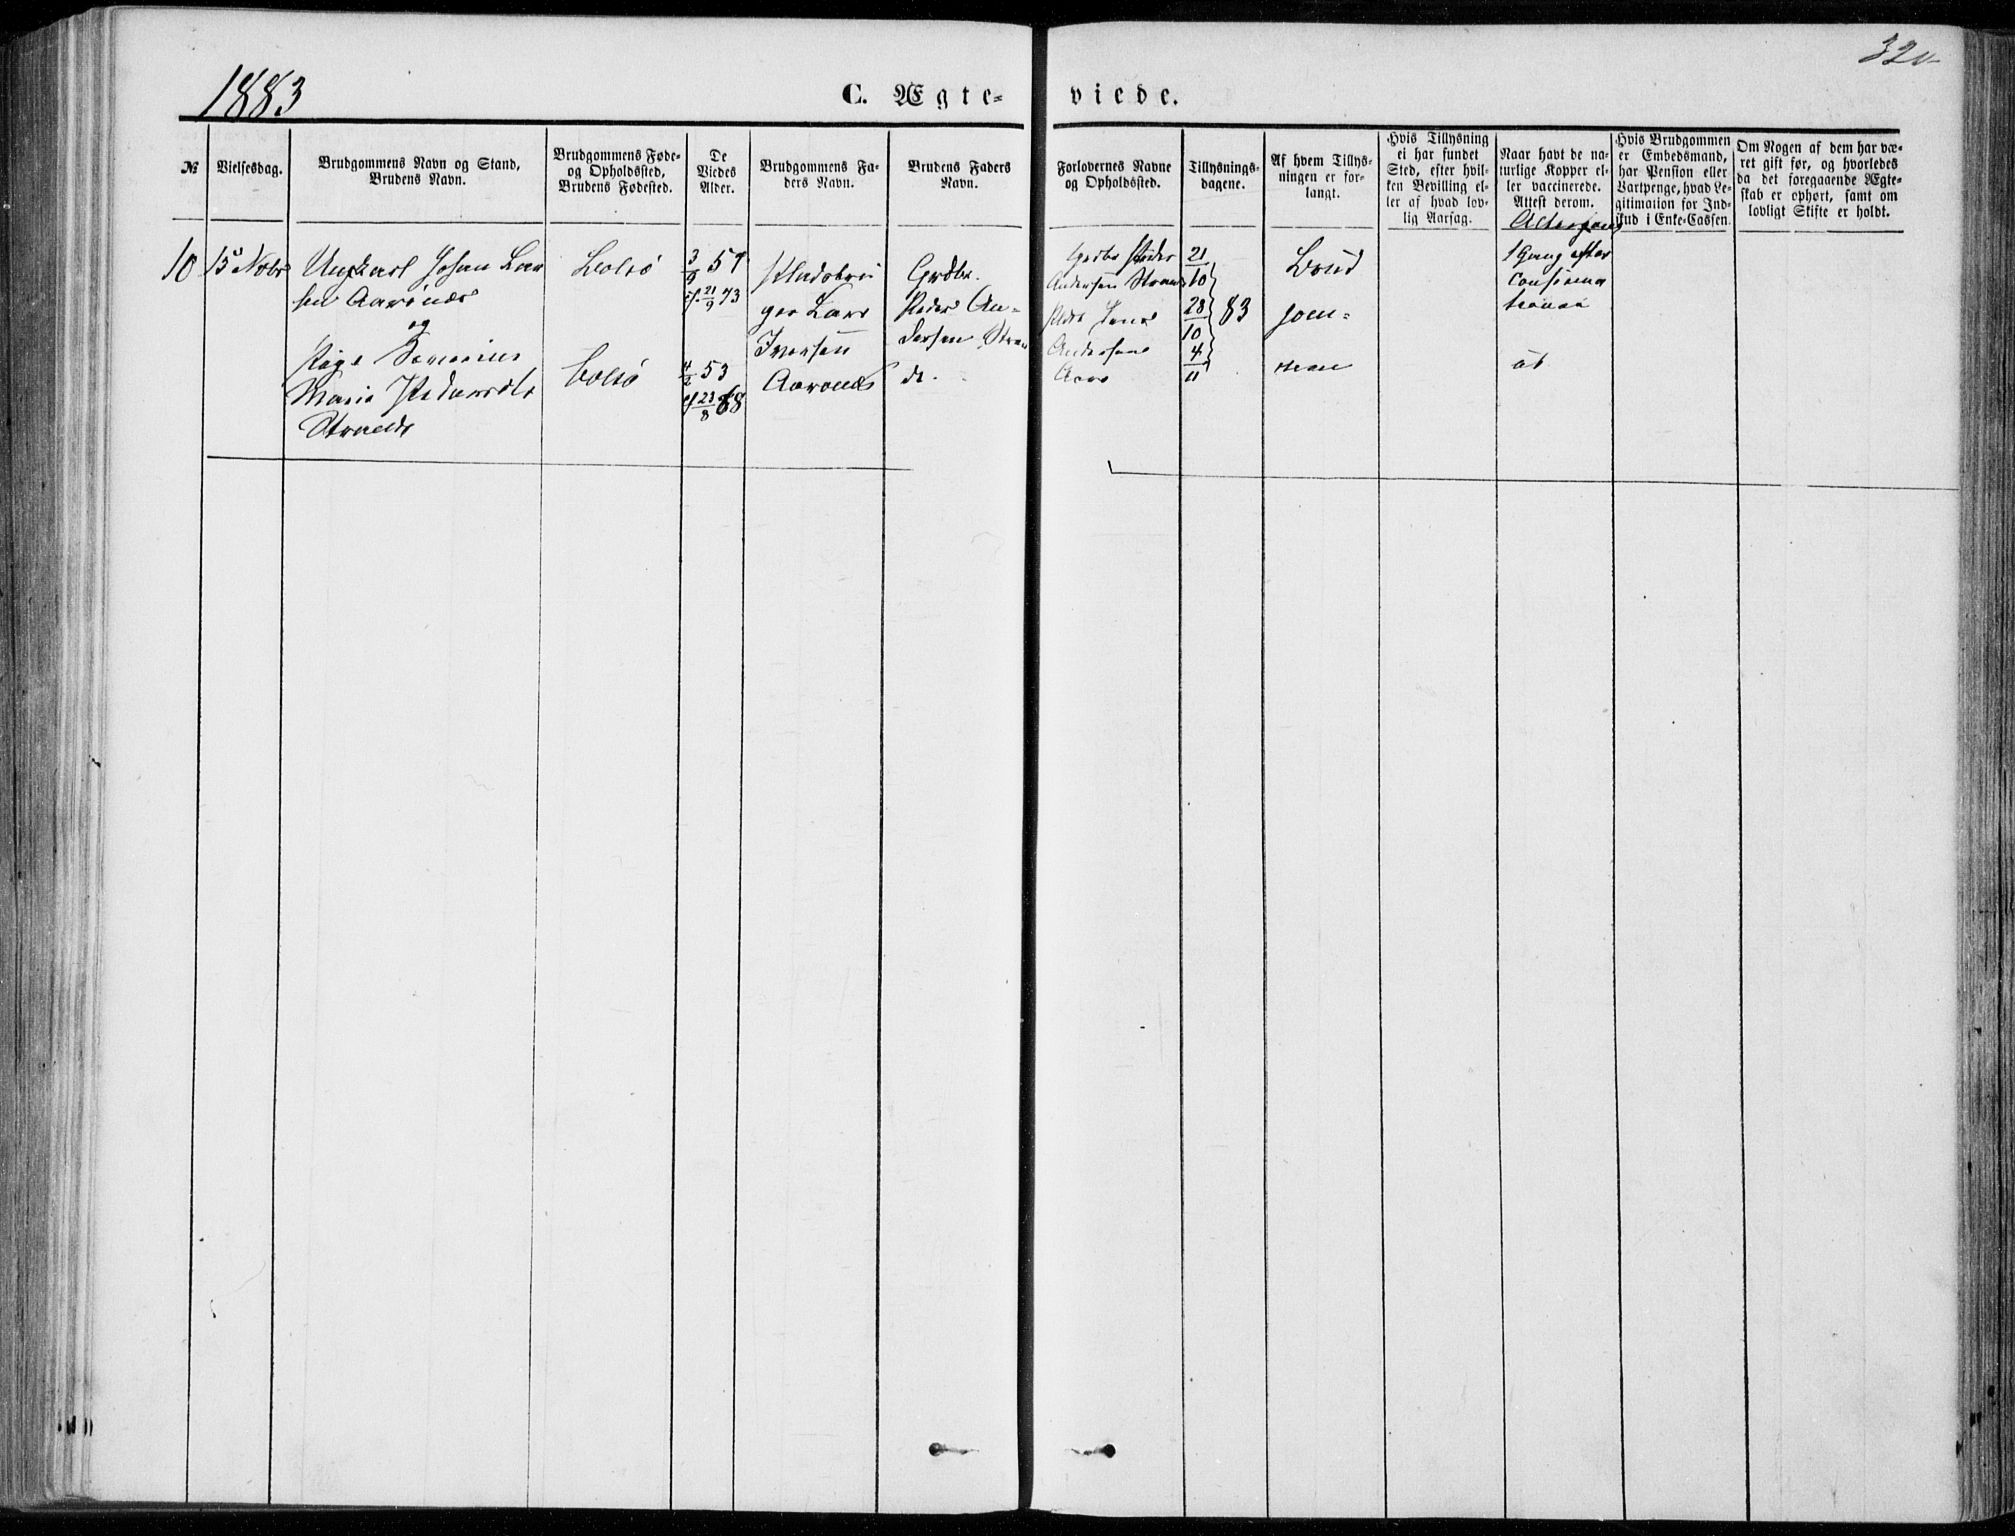 1883
C. Ægte=
viede.
320
№
Vielsesdag.
Brudgommens Navn og Stand,
Brudens Navn.
Brudgommens Føde-
og Opholdssted,
Brudens Fødested.
De
Viedes
Alder.
Brudgommens Fa-
ders Navn.
Brudens Faders
Navn.
Forlovernes Navne
og Opholdssted.
Tillysnings-
dagene.
Af hvem Tillys-
ningen er for-
langt.
Hvis Tillysning
ei har fundet
Sted, efter hvil-
ken Bevilling el-
ler af hvad lov-
lig Aarsag.
Naar havt de na-
turlige Kopper el-
ler vaccinerede.
Attest derom.
Hvis Brudgommen
er Embedsmand,
har Pension eller
Vartpenge, hvad Le-
gitimation for Ind-
skud i Enke-Cassen.
Om Nogen af dem har væ-
ret gift før, og hvorledes
da det foregaaende Ægte-
skab er ophørt, samt om
lovligt Skifte er holdt.
10
15 Novbr
Ungkarl Johan Lar
sen Aarønæs
og
Pige
Marie Pedersdt
Strande
Bolsø
Bolsø
3/9 57
21/9 73
4/2 53
23/8 68
Lars
Iversen
Aarønæs
Grdbr.
Peder An-
dersen Stran
de.
Grdbr Peder
Andersen Strande
Andersen
Aarø
21/10
28/10 83
4/11
Brud
gom-
men
Altergang
1 Gang efter
Confirma
tionen